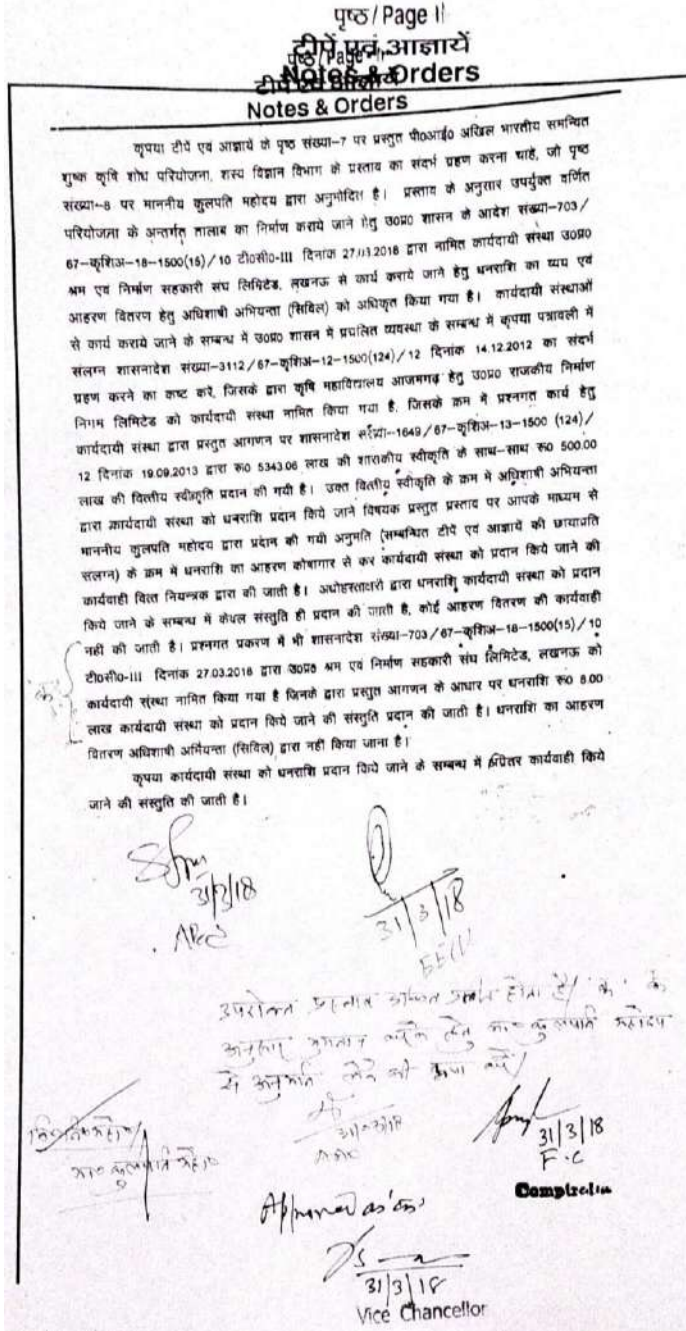 पृष्ठ/Page 11
टीपें एवं आज्ञायें
Notes & Orders
Notes & Orders
कृपया टीपें एवं आज्ञायें के पृष्ठ संख्या-7 पर प्रस्तुत पी०आई० अखिल भारतीय समन्वित
शुष्क कृषि शोध परियोजना, शस्य विज्ञान विभाग के प्रस्ताव का संदर्भ ग्रहण करना चाहें, जो पृष्ठ
संख्या-8 पर माननीय कुलपति महोदय द्वारा अनुमोदित है। प्रस्ताव के अनुसार उपर्युक्त वर्णित
परियोजना के अन्तर्गत तालाब का निर्माण कराये जाने हेतु उ०प्र० शासन के आदेश संख्या-703/
67-कृशिअ-18-1500(15)/10 टी०सी०-III दिनांक 27.03.2018 द्वारा नामित कार्यदायी संस्था उ०प्र०
श्रम एवं निर्माण सहकारी संघ लिमिटेड, लखनऊ से कार्य कराये जाने हेतु धनराशि का व्यय एवं
आहरण वितरण हेतु अधिशाषी अभियन्ता (सिविल) को अधिकृत किया गया है। कार्यदायी संस्थाओं
से कार्य कराये जाने के सम्बन्ध में उ०प्र० शासन में प्रचलित व्यवस्था के सम्बन्ध में कृपया पत्रावली में
संलग्न शासनादेश संख्या-3112/67-कृशिअ-12-1500(124)/12 दिनांक 14.12.2012 का संदर्भ
ग्रहण करने का कष्ट करें, जिसके द्वारा कृषि महाविद्यालय आजमगढ़ हेतु उ०प्र० राजकीय निर्माण
निगम लिमिटेड को कार्यदायी संस्था नामित किया गया है, जिसके क्रम में प्रश्नगत कार्य हेतु
कार्यदायी संस्था द्वारा प्रस्तुत आगणन पर शासनादेश संख्या-1649/67-कृशिअ-13-1500 (124)/
12 दिनांक 19.09.2013 द्वारा रू० 5343.06 लाख की शासकीय स्वीकृति के साथ-साथ रू० 500.00
लाख की वित्तीय स्वीकृति प्रदान की गयी है। उक्त वित्तीय स्वीकृति के क्रम में अधिशाषी अभियन्ता
द्वारा कार्यदायी संस्था को धनराशि प्रदान किये जाने विषयक प्रस्तुत प्रस्ताव पर आपके माध्यम से
माननीय कुलपति महोदय द्वारा प्रदान की गयी अनुमति (सम्बन्धित टीपें एवं आज्ञायें की छायाप्रति
संलग्न) के क्रम में धनराशि का आहरण कोषागार से कर कार्यदायी संस्था को प्रदान किये जाने की
कार्यवाही वित्त नियन्त्रक द्वारा की जाती है। अधोहस्ताक्षरी द्वारा धनराशि कार्यदायी संस्था को प्रदान
किये जाने के सम्बन्ध में केवल संस्तुति ही प्रदान की जाती है, कोई आहरण वितरण की कार्यवाही
नहीं की जाती है। प्रश्नगत प्रकरण में भी शासनादेश संख्या-703/67-कृशिअ-18-1500(15)/10
टी०सी०-III दिनांक 27.03.2018 द्वारा उ०प्र० श्रम एवं निर्माण सहकारी संघ लिमिटेड, लखनऊ को
'क' कार्यदायी संस्था नामित किया गया है जिनके द्वारा प्रस्तुत आगणन के आधार पर धनराशि रू० 8.00
लाख कार्यदायी संस्था को प्रदान किये जाने की संस्तुति प्रदान की जाती है। धनराशि का आहरण
वितरण अधिशाषी अभियन्ता (सिविल) द्वारा नही किया जाना है।
कृपया कार्यदायी संस्था को धनराशि प्रदान किये जाने के सम्बन्ध में अग्रेतर कार्यवाही किये
जाने की संस्तुति की जाती है।
31/3/18
31/3/18
उपरोक्त प्रस्ताव उचित प्रतीत होता है। 'क' के
अनुसार भुगतान करने हेतु मा० कुलपति महोदय
से अनुमति लेने की कृपा करें।
31/3/18
F.C
Comptroller
मा० कुलपति महो०
Approved as 'क'
31/3/18
Vice Chancellor